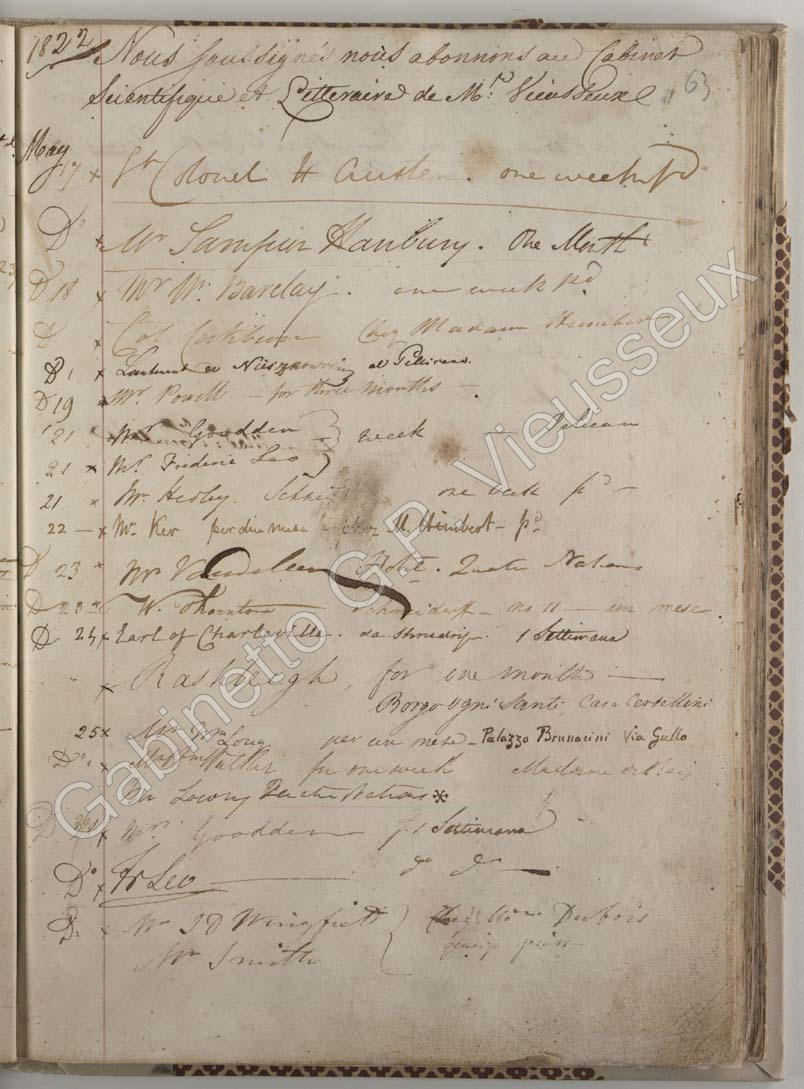 1822 Nous soussignés nous abonnons au Cabinet
Scientifique et Litteraire de Mr Vieusseux
63
May
17 x Lt Colonel H Austen. one week pd
Do x Mr Sampson Hanbury. One Month
D 18 x Mr W. Barclay. one week pd
D x Col Cockburn Chez Madam
D 1 x Lieutenant de al Pellicano.
D 19 x Mr Powell - for three months -
21 Mrs Goodden } week - Pelican
21 x Mr Frederic Leo }
21 x Mr Hedley. one week pd -
22 - x Mr Ker per due mese chez M. Himbert - pd
D 23 x Mr Hotel. Quatre Nations
D 23 x W. Thornton Schneiderff - no 11 - un mese.
D 24 x Earl of Charleville. da 1 Settimana
x Rashleigh, for one month -
Borgo Ogni Santi Casa
25 x Mr Wm Long per un mese - Palazzo Brunacini Via Gallo
Do x Walker for one week Madame
Mr Lowry Quatre Nations
D x Mrs Goodden p. 1 Settimana
Do x Fr Leo do do
D: x Mr J D Wingfield } Chez Mme Dubois
Mr Smith
Gabinetto G.P. Vieusseux